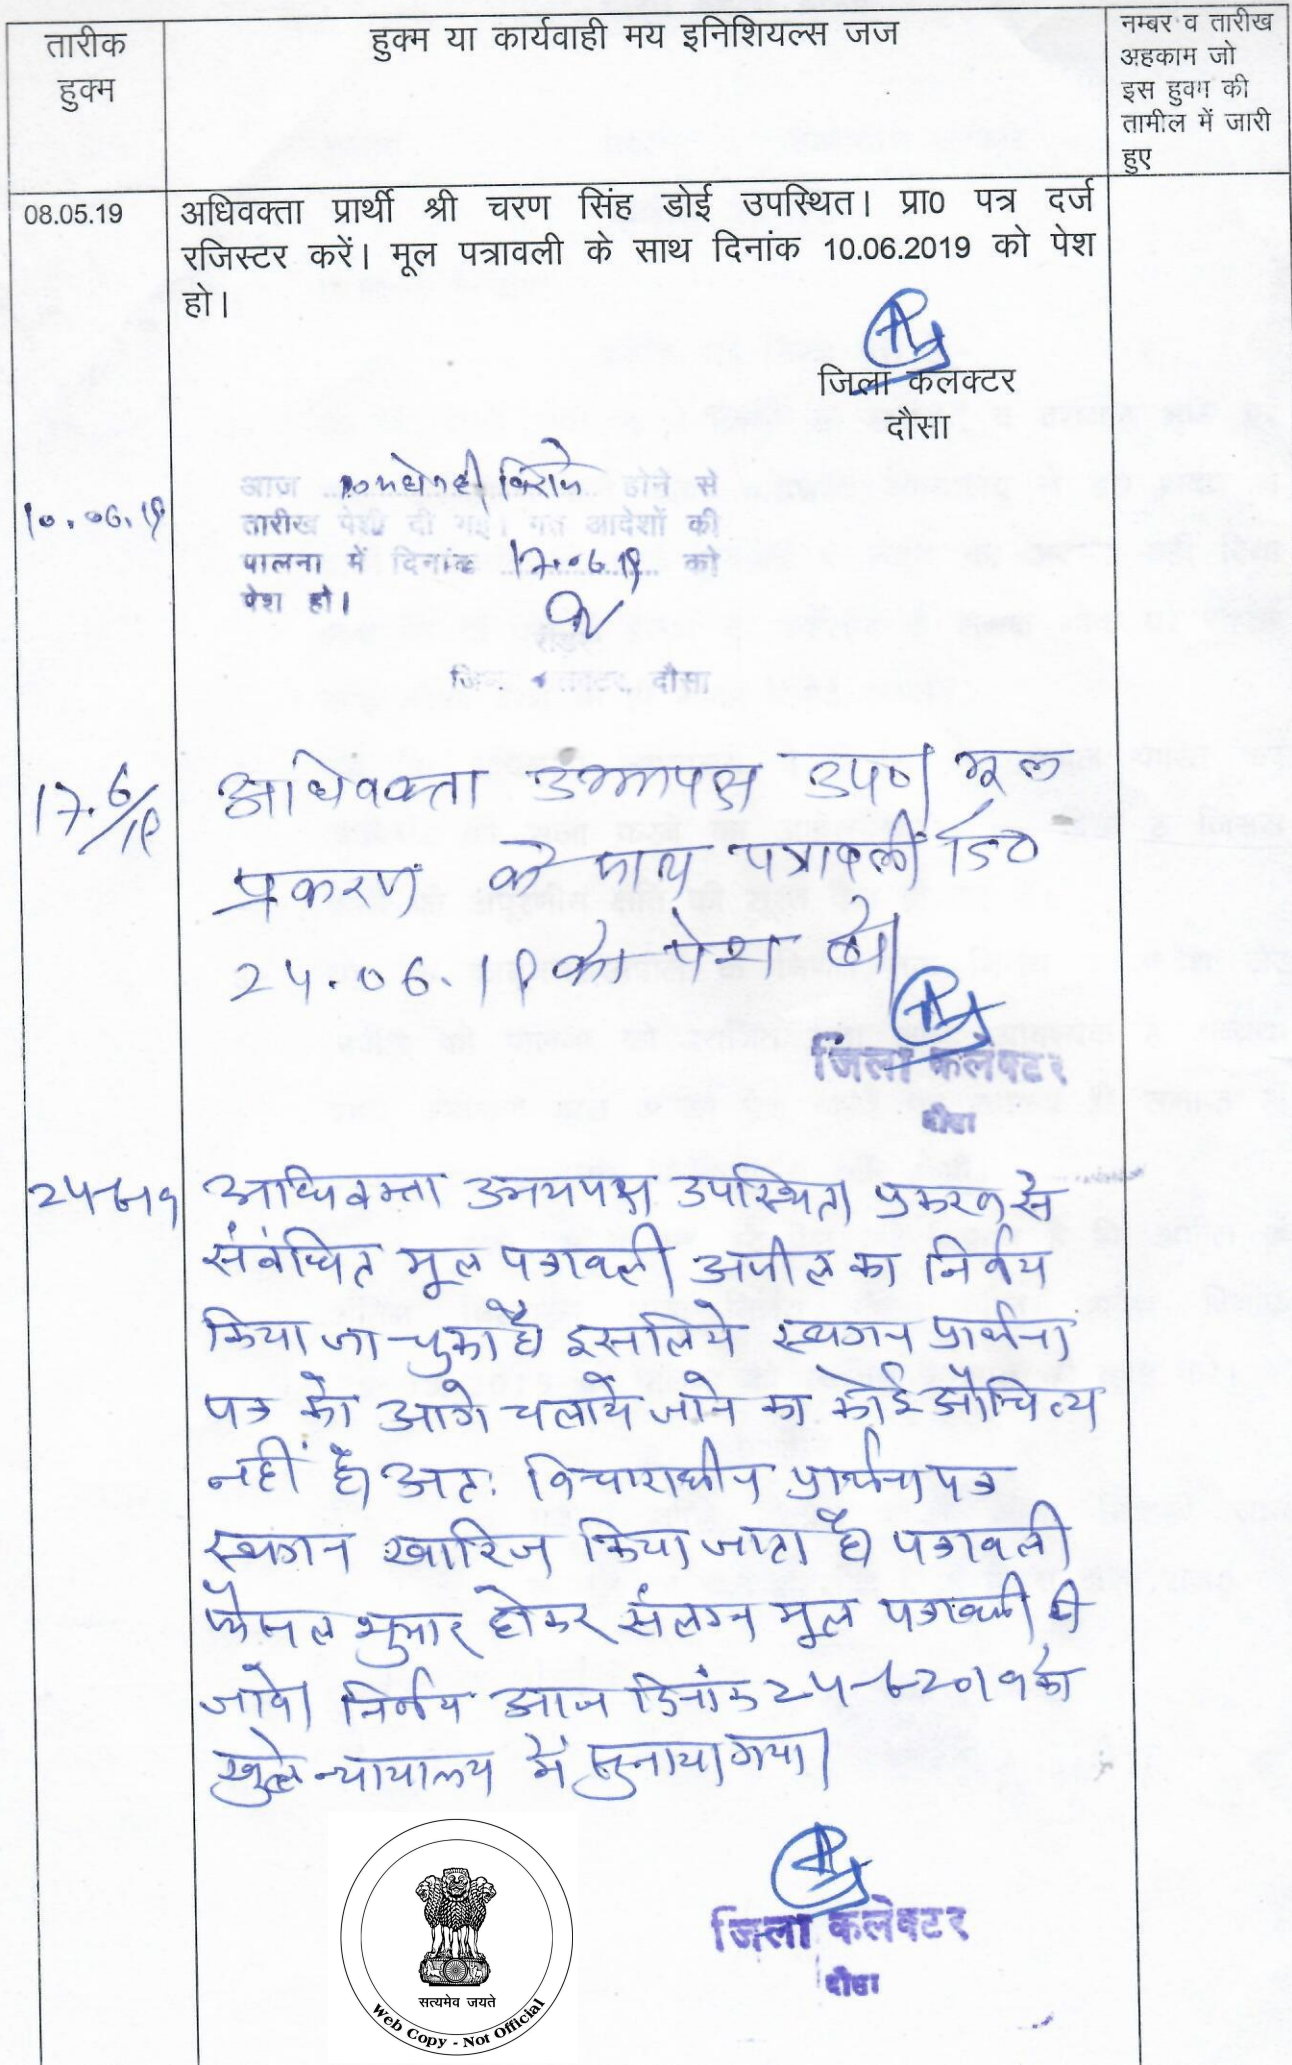 तारीक
हुक्म
हुक्म या कार्यवाही मय इनिशियल्स जज
नम्बर व तारीख
अहकाम जो
इस हुक्म की
तामील में जारी
हुए
08.05.19
अधिवक्ता प्रार्थी श्री चरण सिंह डोई उपस्थित। प्रा0 पत्र दर्ज
रजिस्टर करें। मूल पत्रावली के साथ दिनांक 10.06.2019 को पेश
हो।
जिला कलक्टर
दौसा
10.06.19
आज होने से
तारीख पेशी दी गई। गत आदेशों की
पालना में दिनांक 17.06.19 को
पेश हो।
रीडर
कलक्टर, दौसा
17.6/19
अधिवक्ता उभयपक्ष उप0। मूल
प्रकरण के साथ पत्रावली दि0
24.06.19 को पेश हो।
जिला कलेक्टर
दौसा
24-6-19
अधिवक्ता उभयपक्ष उपस्थित। प्रकरण से
संबंधित मूल पत्रावली अपील का निर्णय
किया जा चुका है। इसलिये स्थगन प्रार्थना
पत्र को आगे चलाये जाने का कोई औचित्य
नहीं है। अतः विचाराधीन प्रार्थना पत्र
स्थगन खारिज किया जाता है। पत्रावली
फैसल शुमार होकर संलग्न मूल पत्रावली की
जावे। निर्णय आज दिनांक 24-6-2019 को
खुले न्यायालय में सुनाया गया।
जिला कलेक्टर
दौसा
सत्यमेव जयते
Web Copy - Not Official